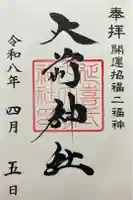 奉拝 開運招福二福神
大前神社
令和八年 四月 五日